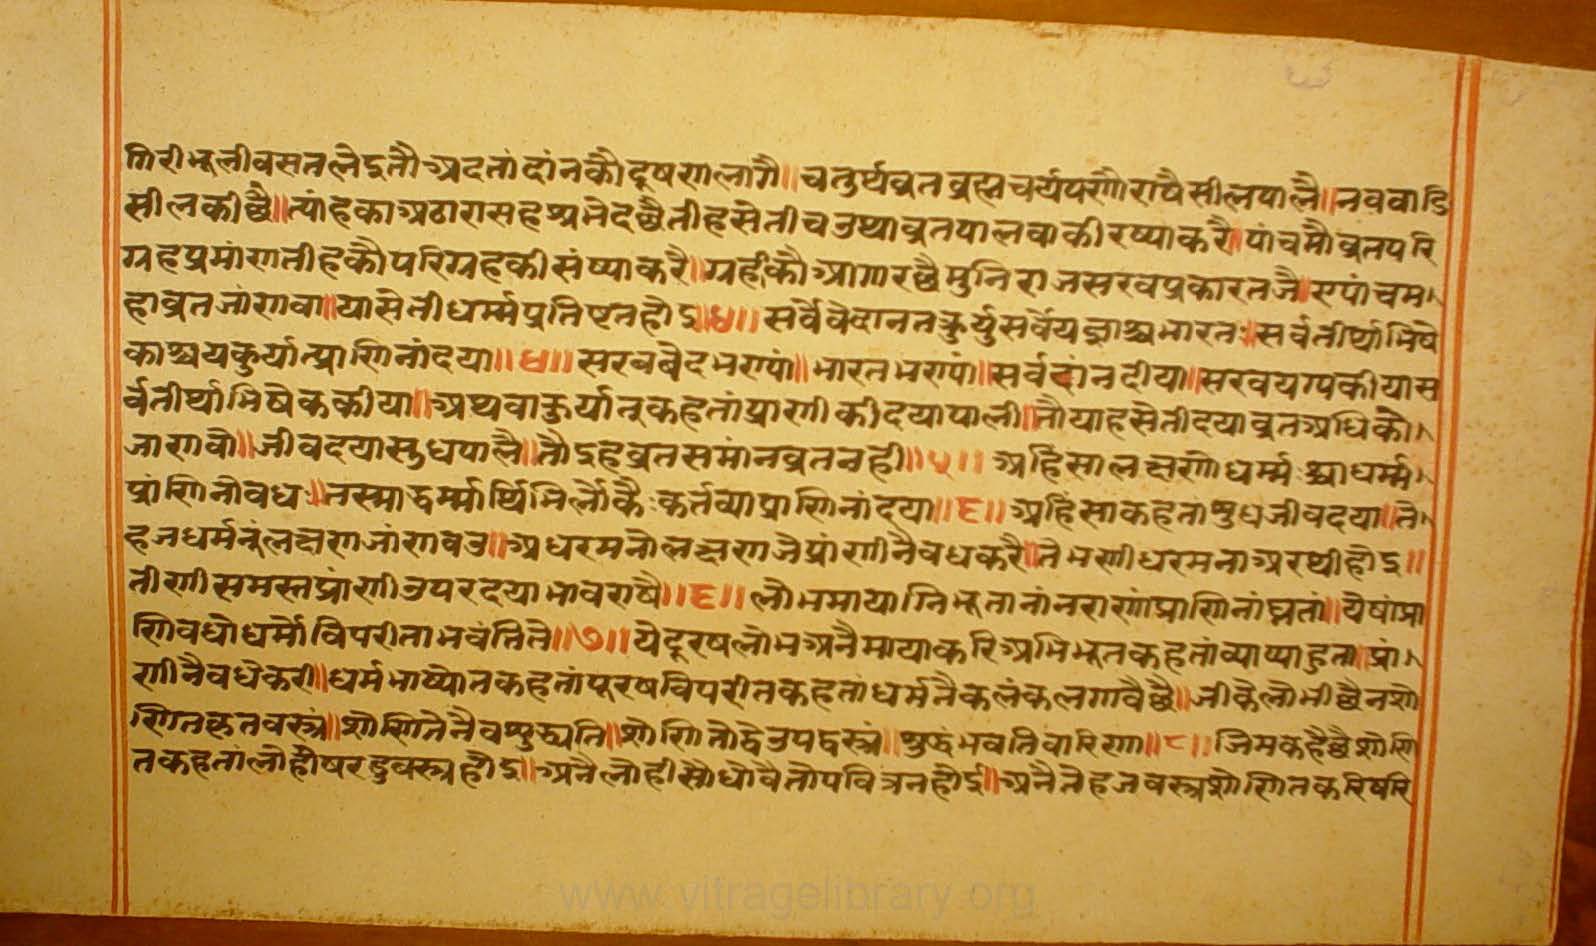 गिरीभूलीवसतलेइतौअदतांदांनकौदूषणलागै॥चतुर्थव्रतब्रह्मचर्यपणौराषैसीलपालै॥नववाडि
सीलकीछै॥त्यांहकाअठारासहश्रभेदछैतीहसेतीचउथाव्रतपालवाकीरष्याकरै॥पांचमौव्रतपरि
ग्रहप्रमांणतीहकौपरिग्रहकीसंष्याकरै॥ग्रहीकौआगारछैमुनिराजसरवप्रकारतजै॥एपांचम
हाव्रतजांणवा॥यासेतीधर्म्मप्रतिष्टतहोइ॥४॥सर्वेवेदानतत्कुर्युसर्वेयज्ञाश्चभारतः॥सर्वतीर्थाभिषे
काश्चयकुर्यात्प्राणिनांदया॥४॥सरबबेदभण्यां॥भारतभण्यां॥सर्वदांनदीया॥सरवयग्यकीयास
र्वतीर्थाभिषेककीया॥अथवाकुर्यातुकहतांप्राणीकीदयापाली॥तौयाहसेतीदयाव्रतअधिकौ
जाणवौ॥जीवदयासुधपालै॥तौइहव्रतसमांनव्रतनही॥५॥अहिंसालक्षणोधर्म्मःअधर्म्म
प्रांणिनोवधः॥तस्माद्धर्म्मार्थिभिर्लोकैःकर्तव्याप्राणिनांदया॥६॥अहिंसांकहतांशुधजीवदया॥ते
हजधर्मनुंलक्षणजांणवउ॥अधरमनोलक्षणजेप्रांणीनैवधकरै॥तेभणीधरमनाअरथीहोइ॥
तीणीसमस्तप्रांणीउपरदयाभावराषै॥६॥लोभमायाग्निभूतानांनराणांप्राणिनांघ्नतां॥येषांप्रा
णिवधोधर्मोविपरीताभवंतिते॥७॥येदूरषलोभअनैमायाकरिअभिभूतकहतांव्याप्याहुता॥प्रां
णीनैवधेकरी॥धर्मभाष्योतकहतांपूरषविपरीतकहतांधर्मनैकलंकलगावैछै॥जीकेलोभीछैनशो
णितकृतवस्त्रं॥शोणितेनैवशुद्ध्यति॥शोणितोद्देउपद्वस्त्रं॥शुद्धंभवतिवारिणा॥८॥जिमकहैछैशोणि
तकहतांलोहीषरडुवस्त्रहोइ॥अनैलोहीसोधोवैतोपवित्रनहोई॥अनैतेहजवस्त्रशोणितकरिषरि
www.vitragelibrary.org